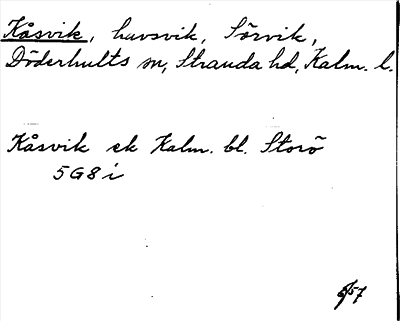 Kåsvik, havsvik, Sörvik,
Döderhults sn, Stranda hd, Kalm. l.
Kåsvik ek Kalm. bl. Storö
5G8i
57